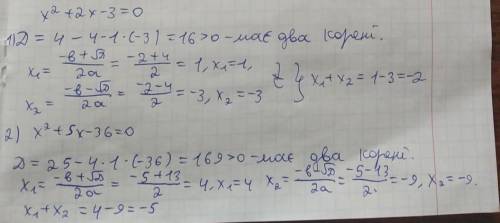 x² + 2x - 3 = 0
1) D = 4 - 4 · 1 · (-3) = 16 > 0 - має два корені.
x₁ = (-в + √D)/2a = (-2 + 4)/2 = 1, x₁ = 1,
x₂ = (-в - √D)/2a = (-2 - 4)/2 = -3, x₂ = -3 } x₁ + x₂ = 1 - 3 = -2
2) x² + 5x - 36 = 0
D = 25 - 4 · 1 · (-36) = 169 > 0 - має два корені.
x₁ = (-в + √D)/2a = (-5 + 13)/2 = 4, x₁ = 4 x₂ = (-в - √D)/2a = (-5 - 13)/2 = -9, x₂ = -9.
x₁ + x₂ = 4 - 9 = -5